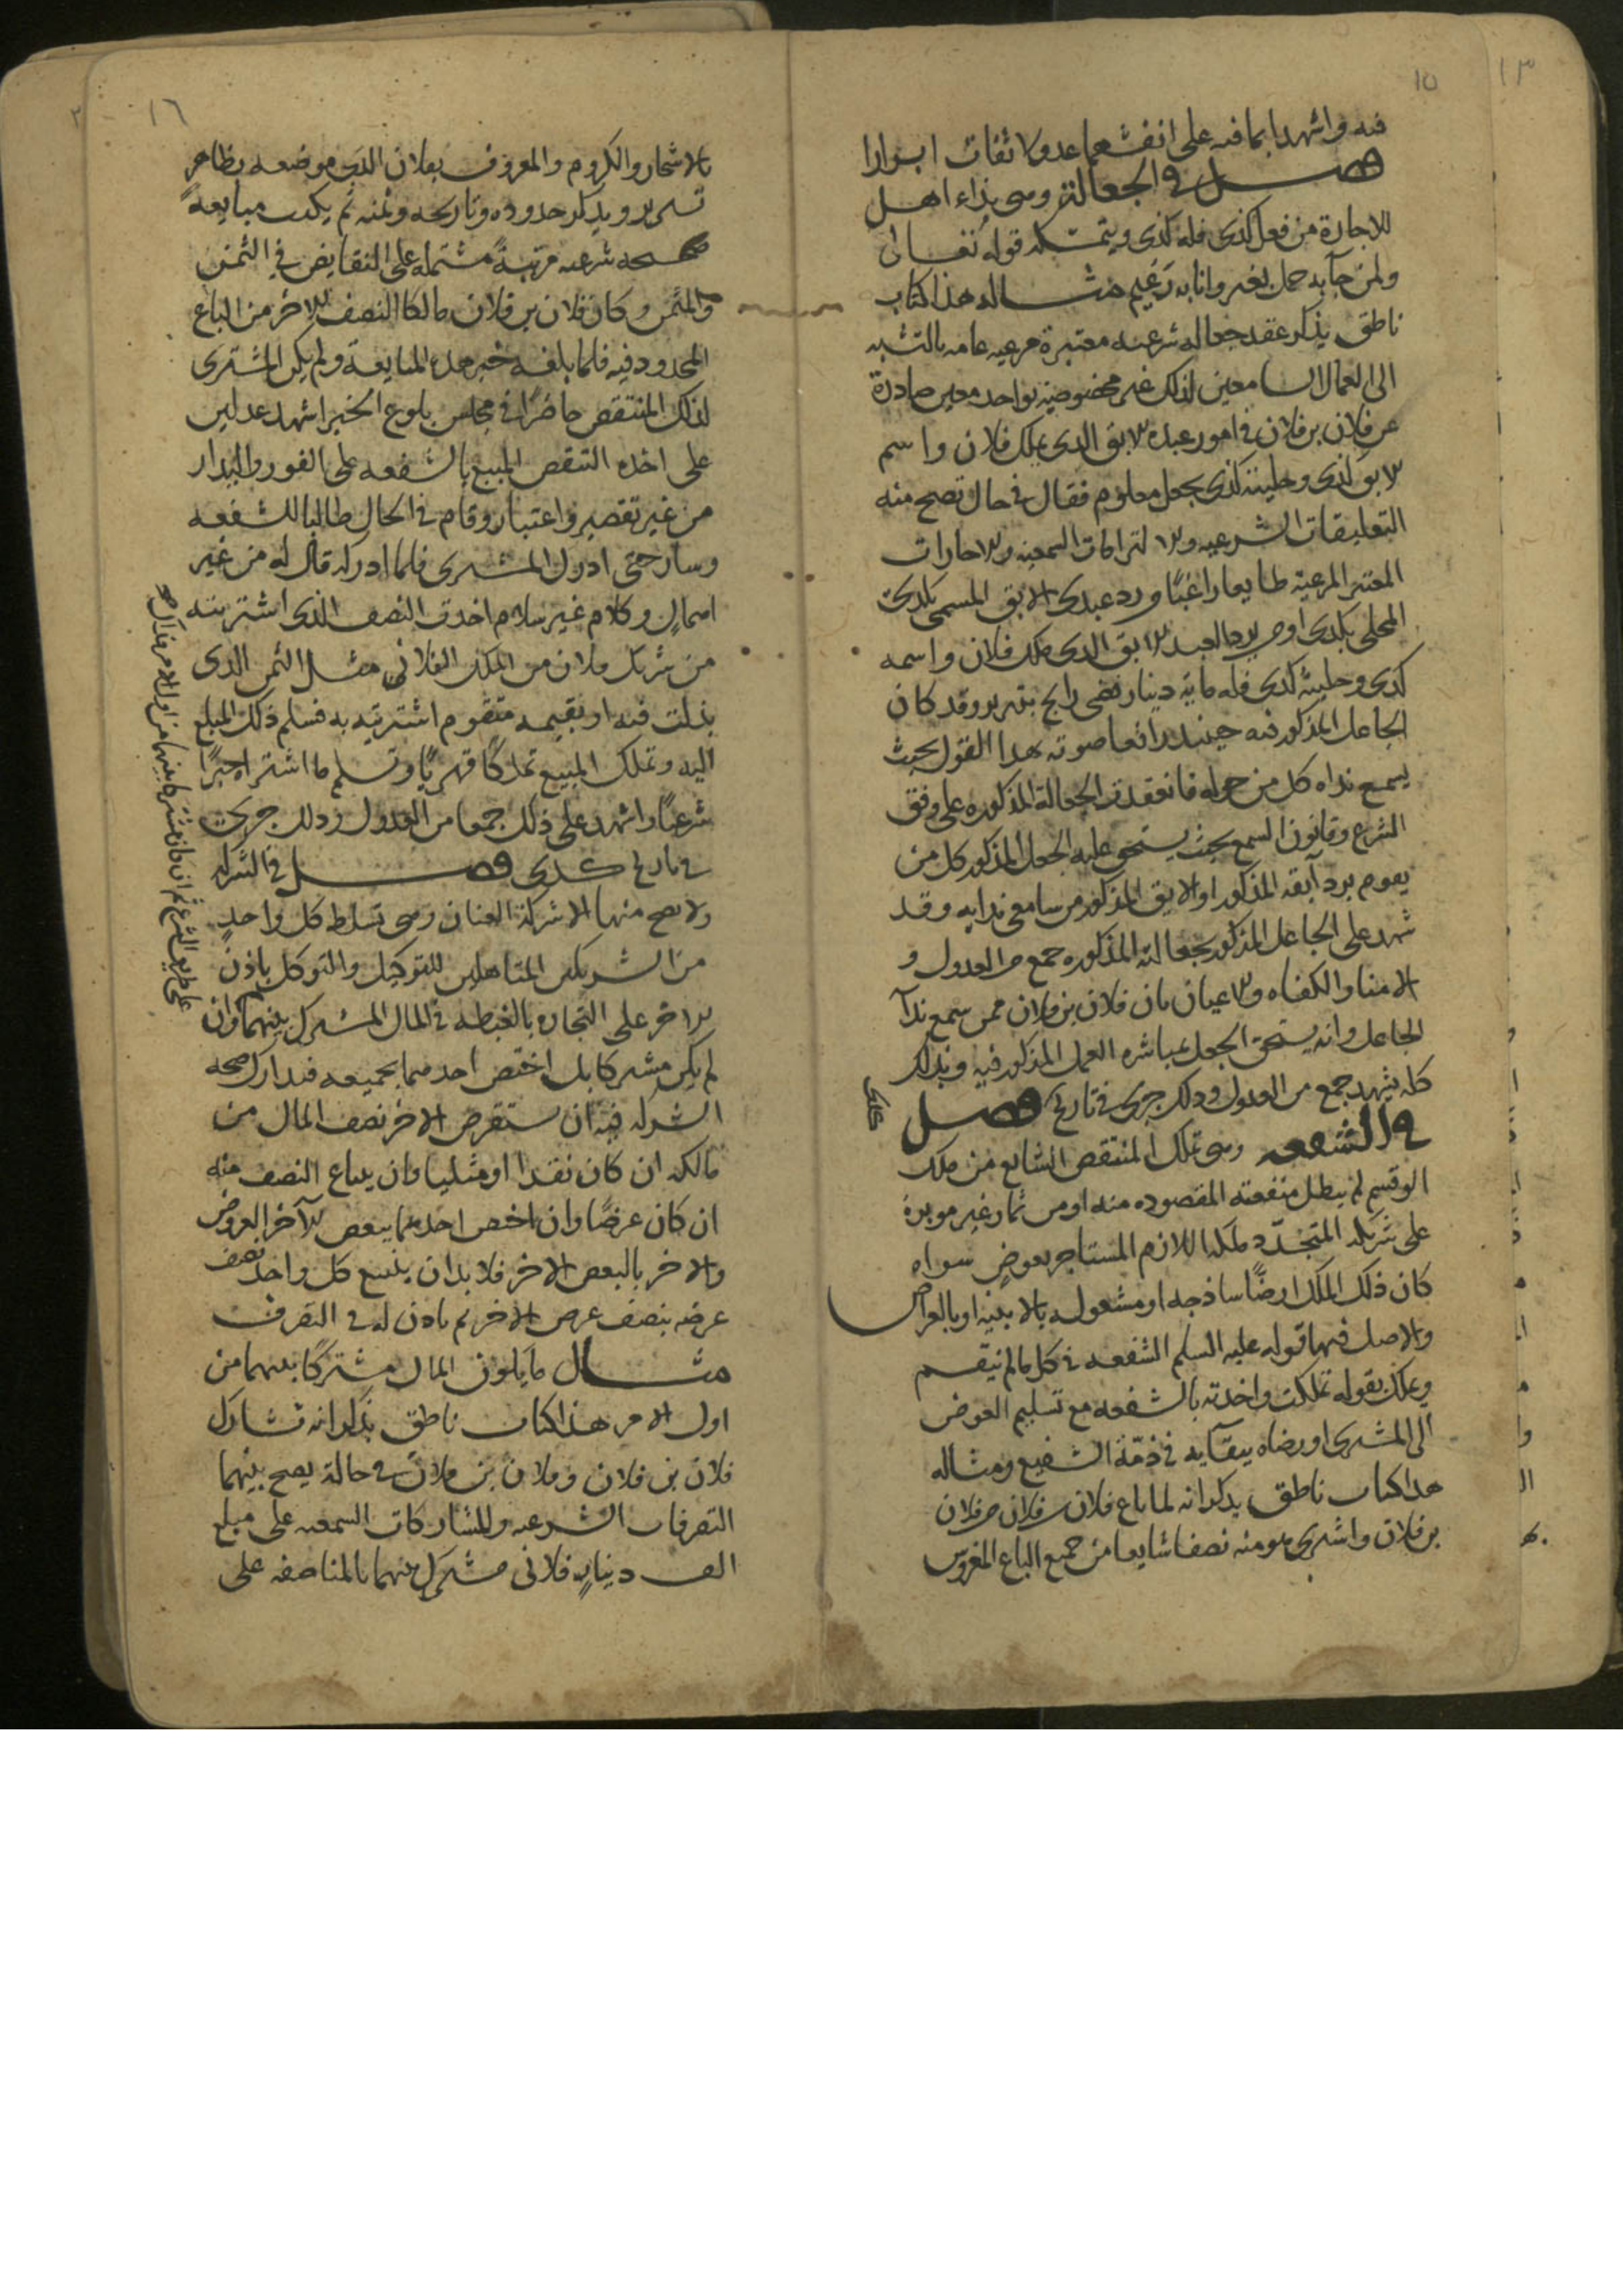 ١٥
فيه واشهدا بما فيه على انفسهما عدولا ثقات ابرارا
فصل في الجعالة وهي نداء اهل
للاجارة من فعل كذى فله كذى ويتمسك قوله تعالى
ولمن جآ به حمل بعير وانا به زعيم مثاله هذا كتاب
ناطق يذكر عقد جعاله شرعيه معتبرة مرعيه عامه بالنسبه
الى العمال السامعين لذلك غير مخصوصيه بواحد معين صادرة
عن فلان بن فلان في امور عبده الابق الدى يملك فلان واسم
الابق كذى وحليته كذى بجعل معلوم فقال في حال تصح منه
التعليقات الشرعيه والالتزامات السمعيه والاجارات
المعتبر المرعيه طايعا راغبا من رد عبدى الابق المسمى بكذى
المحلى بكذى او من يرد العبد الابق الدى ملك فلان واسمه
كذى وحليته كذى فله مايه دينار فضى رايج بتبريز وقد كان
الجاعل المذكور فيه حينئذ رافعا صوته بهذا القول بحيث
يسمع نداه كل من حوله فانعقدت الجعالة المذكوره على وفق
الشرع وقانون السمع بحيث يستحق عليه الجعل المذكور كل من
يقوم برد آبقه المذكور او الابق المذكور من سامعى ندايه وقد
شهد على الجاعل المذكور بجعالته المذكوره جمع من العدول و
الامنا والكفاه والاعيان بان فلان بن فلان ممن سمع ندآ
الجاعل وانه يستحق الجعل بمباشره العمل المذكور فيه وبذلك
كله يشهد جمع من العدول وذلك جرى في تاريخ فصل
في الشفعه وهي تملك المنتقص الشايع من ملك
لو قسم لم يبطل منفعته المقصوده منه او من ثمار غير موبرة
على شريكه المتجدد ملكه اللازم المستاجر بعوض سواه
كان ذلك الملك ارضًا ساذجه او مشغوله بالابنيه او بالعراض
والاصل فيها قوله عليه السلم الشفعه في كل ما لم يقسم
ويملك بقوله تملكت واخذته بالشفعه مع تسليم العوض
الى المشترى او رضاه ببقآيه في ذمة الشفيع ومثاله
هذا كتاب ناطق يذكر انه لما باع فلان بن فلان من فلان
بن فلان واشترى هو منه نصفا شايعا من جميع الباغ المغروس
١٦
بالاشجار والكروم والمعروف بفلان الذى موضعه بظاهر
تبريز ويذكر حدوده وتاريخه وثمنه ثم يكتب مبايعةً
صحيحه شرعيه مرتبةً مشتمله على التقابض في الثمن
والمثمن وكان فلان بن فلان مالكا النصف الاخر من الباغ
المحدود فيه فلما بلغه خبر هذه المبايعة ولم يكن المشترى
لذلك المنتقص حاضرًا في مجلس بلوغ الخبر اشهد عدلين
على اخذه التنقص المبيع بالشفعه على الفور والبدار
من غير تقصير واعتبار وقام في الحال طالبا للشفعه
وسار حتى ادرك المشترى فلما ادركه قال له من غير
امهال وكلام غير سلام اخذت النصف الذى اشتريته
من شريك فلان من الملك الفلانى بمثل الثمن الذى
بذلت فيه او بقيمه متقوم اشتريته به فسلم ذلك المبلغ
اليه وتملك المبيع تملكًا قهريًا وتسلم ما اشتراه جبرًا
شرعيًا واشهد على ذلك جمعا من العدول وذلك جرى
في تاريخ كذى فصل في الشركه
ولا يصح منها الا شركة العنان وهى تسلط كل واحدٍ
من الشريكين المتاهلين للتوكيل والتوكل باذن
الاخر على التجاره بالغبطه في المال المشترك بينهما وان
لم يكن مشتركا بل اختص احدهما بجميعه فتدارك صحه
الشركه فيه ان يستقرض الاخر نصف المال من
مالكه ان كان نقدا او مثليا وان يبتاع النصف منه
ان كان عرضًا وان اختص احدهما ببعض الآخر العروض
والاخر بالبعض الاخر فلا بد ان يبيع كل واحد نصف
عرضه بنصف عرض الاخر ثم ياذن له في التصرف
مثال ما يكون المال مشتركًا بينهما من
اول الامر هذا كتاب ناطق بذكر انه تشارك
فلان بن فلان وفلان بن فلان في حالة يصح بينهما
التصرفات الشرعيه والمشاركات السمعيه على مبلغ
الف دينارٍ فلانى مشترك بينهما بالمناصفه على